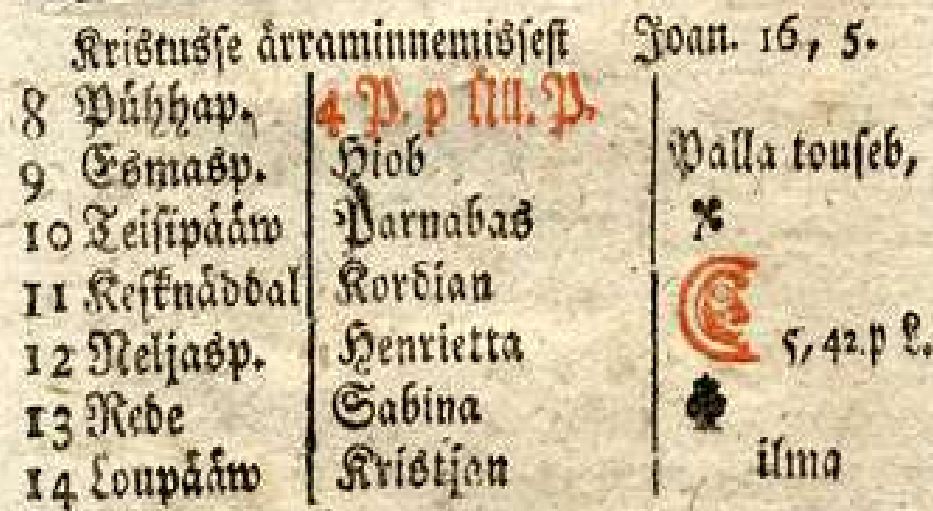 Kristusse ärraminnemissest Joan. 16, 5.
8 Pühhap. 4 P. p Ül. P.
9 Esmasp. Hiob Palla touseb,
10 Teisipääw Parnabas
11 Kesknäddal Kordian
12 Neljasp. Henrietta 5, 42. p L.
13 Rede Sabina
14 Loupääw Kristjan ilma